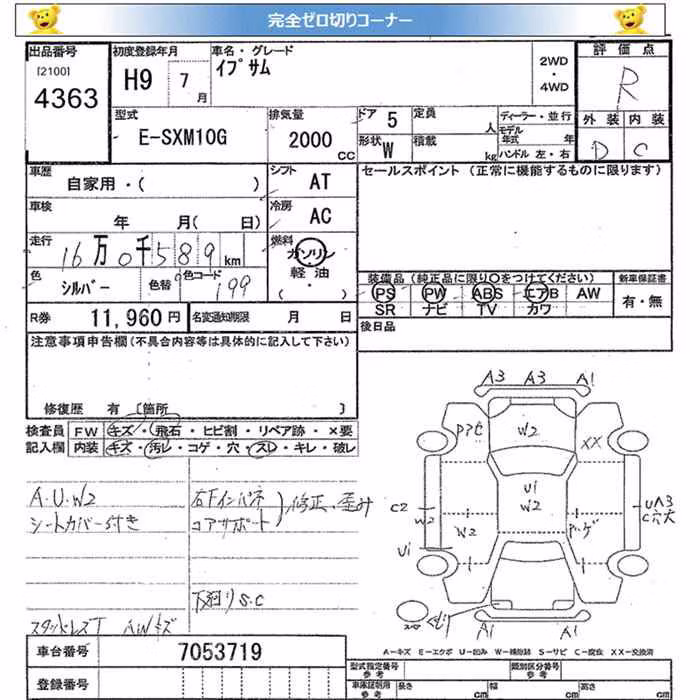 完全ゼロ切りコーナー
出品番号
[2100]
4363
初度登録年月
H9 7月
車名・グレード
イプサム
2WD
・
4WD
評価点
R
型式
E-SXM10G
排気量
2000 cc
ドア 5
形状 W
定員 人
積載 kg
ディーラー・並行
モデル年式 年
ハンドル 左・右
外装 内装
D C
車歴
自家用・( )
シフト AT
セールスポイント (正常に機能するものに限ります)
車検
年 月( 日)
冷房 AC
走行
16万0千589km
燃料
ガソリン
・
軽油
( )
色 シルバー 色替 色コード 199
装備品(純正品に限り○をつけてください) 新車保証書
PS PW ABS エアB AW 有・無
SR ナビ TV カワ
R券 11,960円 名変通知期限 月 日
後日品
注意事項申告欄(不具合内容等は具体的に記入して下さい)
修復歴 有 [箇所 ]
検査員 FW キズ・飛石・ヒビ割・リペア跡・×要
記入欄 内装 キズ・汚レ・コゲ・穴・スレ・キレ・破レ
A.U.W2
シートカバー付き
右Fインパネ
コアサポート
修正、歪み
下廻りS.C
スタッドレスT AWキズ
A3 A3 A1
W2
XX
U1
W2
C2
W2
W2
U1
UA3
C穴大
A1 A1
A-キズ E-エクボ U-凹み W-補修跡 S-サビ C-腐食 XX-交換済
車台番号 7053719
登録番号
型式指定番号
参考
類別区分番号
参考
車庫証明用
参考
長さ cm 幅 cm 高さ cm